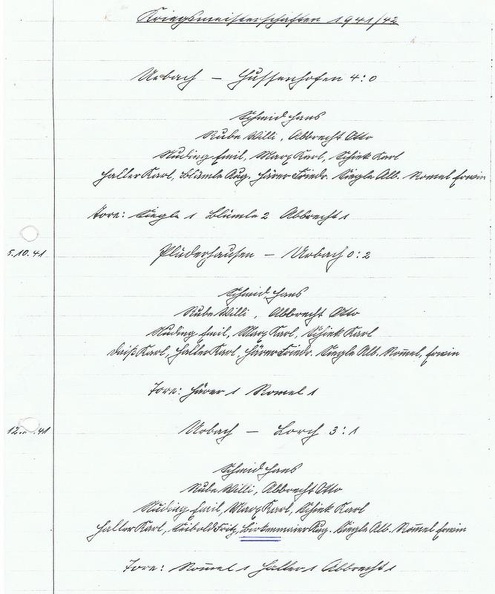 Kriegsmeisterschaften 1941/42
Urbach — Hussenhofen 4:0
Schmid Hans
Kube Willi, Albrecht Otto
Nuding Emil, Marx Karl, Schiek Karl
Haller Karl, Blümle Aug. Härer Friedr. Siegle Alb. Romel Erwin
Tore: Siegle 1 Blümle 2 Albrecht 1
5.10.41 Plüderhausen — Urbach 0:2
Schmid Hans
Kube Willi, Albrecht Otto
Nuding Emil, Marx Karl, Schiek Karl
Daiß Karl, Haller Karl, Härer Friedr. Siegle Alb. Romel, Erwin
Tore: Härer 1 Romel 1
12. .41 Urbach — Lorch 3:1
Schmid Hans
Kube Willi, Albrecht Otto
Nuding Emil, Marx Karl, Schiek Karl
Haller Karl, Seibold Fritz, Birkenmaier Aug. Siegle Alb. Romel Erwin
Tore: Romel 1 Haller 1 Albrecht 1